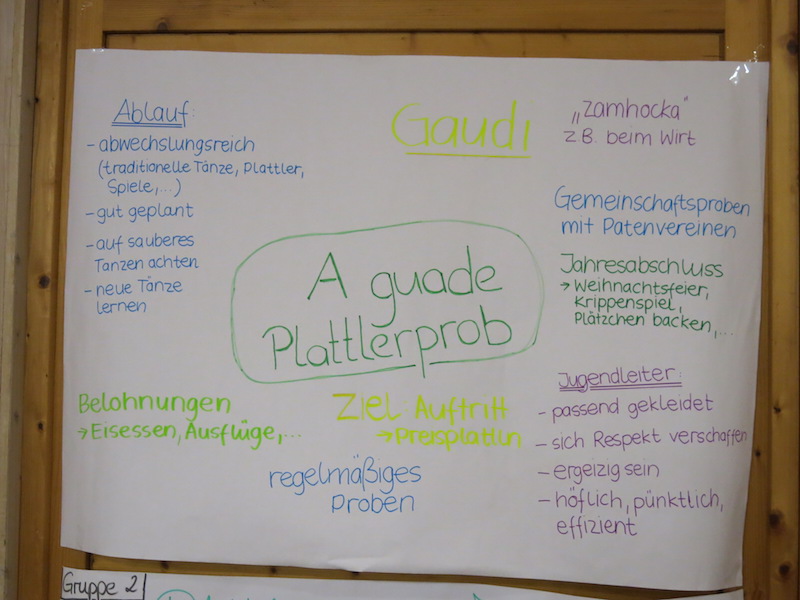 Ablauf:
- abwechslungsreich
(traditionelle Tänze, Plattler,
Spiele,...)
- gut geplant
- auf sauberes
Tanzen achten
- neue Tänze
lernen
Gaudi
„zamhocka"
z B. beim Wirt
Gemeinschaftsproben
mit Patenvereinen
Jahresabschluss
→ Weihnachtsfeier,
Krippenspiel,
Plätzchen backen,...
A guade
Plattlerprob
Belohnungen
→ Eisessen, Ausflüge,...
Ziel Auftritt
→ Preisplattln
regelmäßiges
Proben
Jugendleiter:
- passend gekleidet
- sich Respekt verschaffen
- ergeizig sein
- höflich, pünktlich,
effizient
Gruppe 2